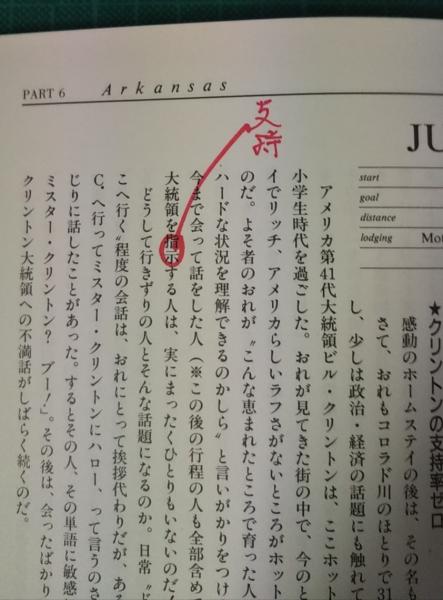 PART 6 Arkansas
支持
JU
start
goal
distance
lodging Mot
★クリントンの支持率ゼロ
感動のホームステイの後は、その名も
さて、おれもコロラド川のほとりで31
し、少しは政治・経済の話題にも触れて
アメリカ第41代大統領ビル・クリントンは、ここホット
小学生時代を過ごした。おれが見てきた街の中で、今のと
イでリッチ、アメリカらしいラフさがないところがホット
のだ。よそ者のおれが〝こんな恵まれたところで育った人
ハードな状況を理解できるのかしら〟と言いがかりをつけ
今まで会って話をした人（※この後の行程の人も全部含め
大統領を指示する人は、実にまったくひとりもいないのだ
どうして行きずりの人とそんな話題になるのか。日常〝ド
こへ行く〟程度の会話は、おれにとって挨拶代わりだが、ある
C.へ行ってミスター・クリントンにハロー、って言うのさ
じりに話したことがあった。するとその人、その単語に敏感
ミスター・クリントン？ ブー！〟。その後は、会ったばかり
クリントン大統領への不満話がしばらく続くのだ。